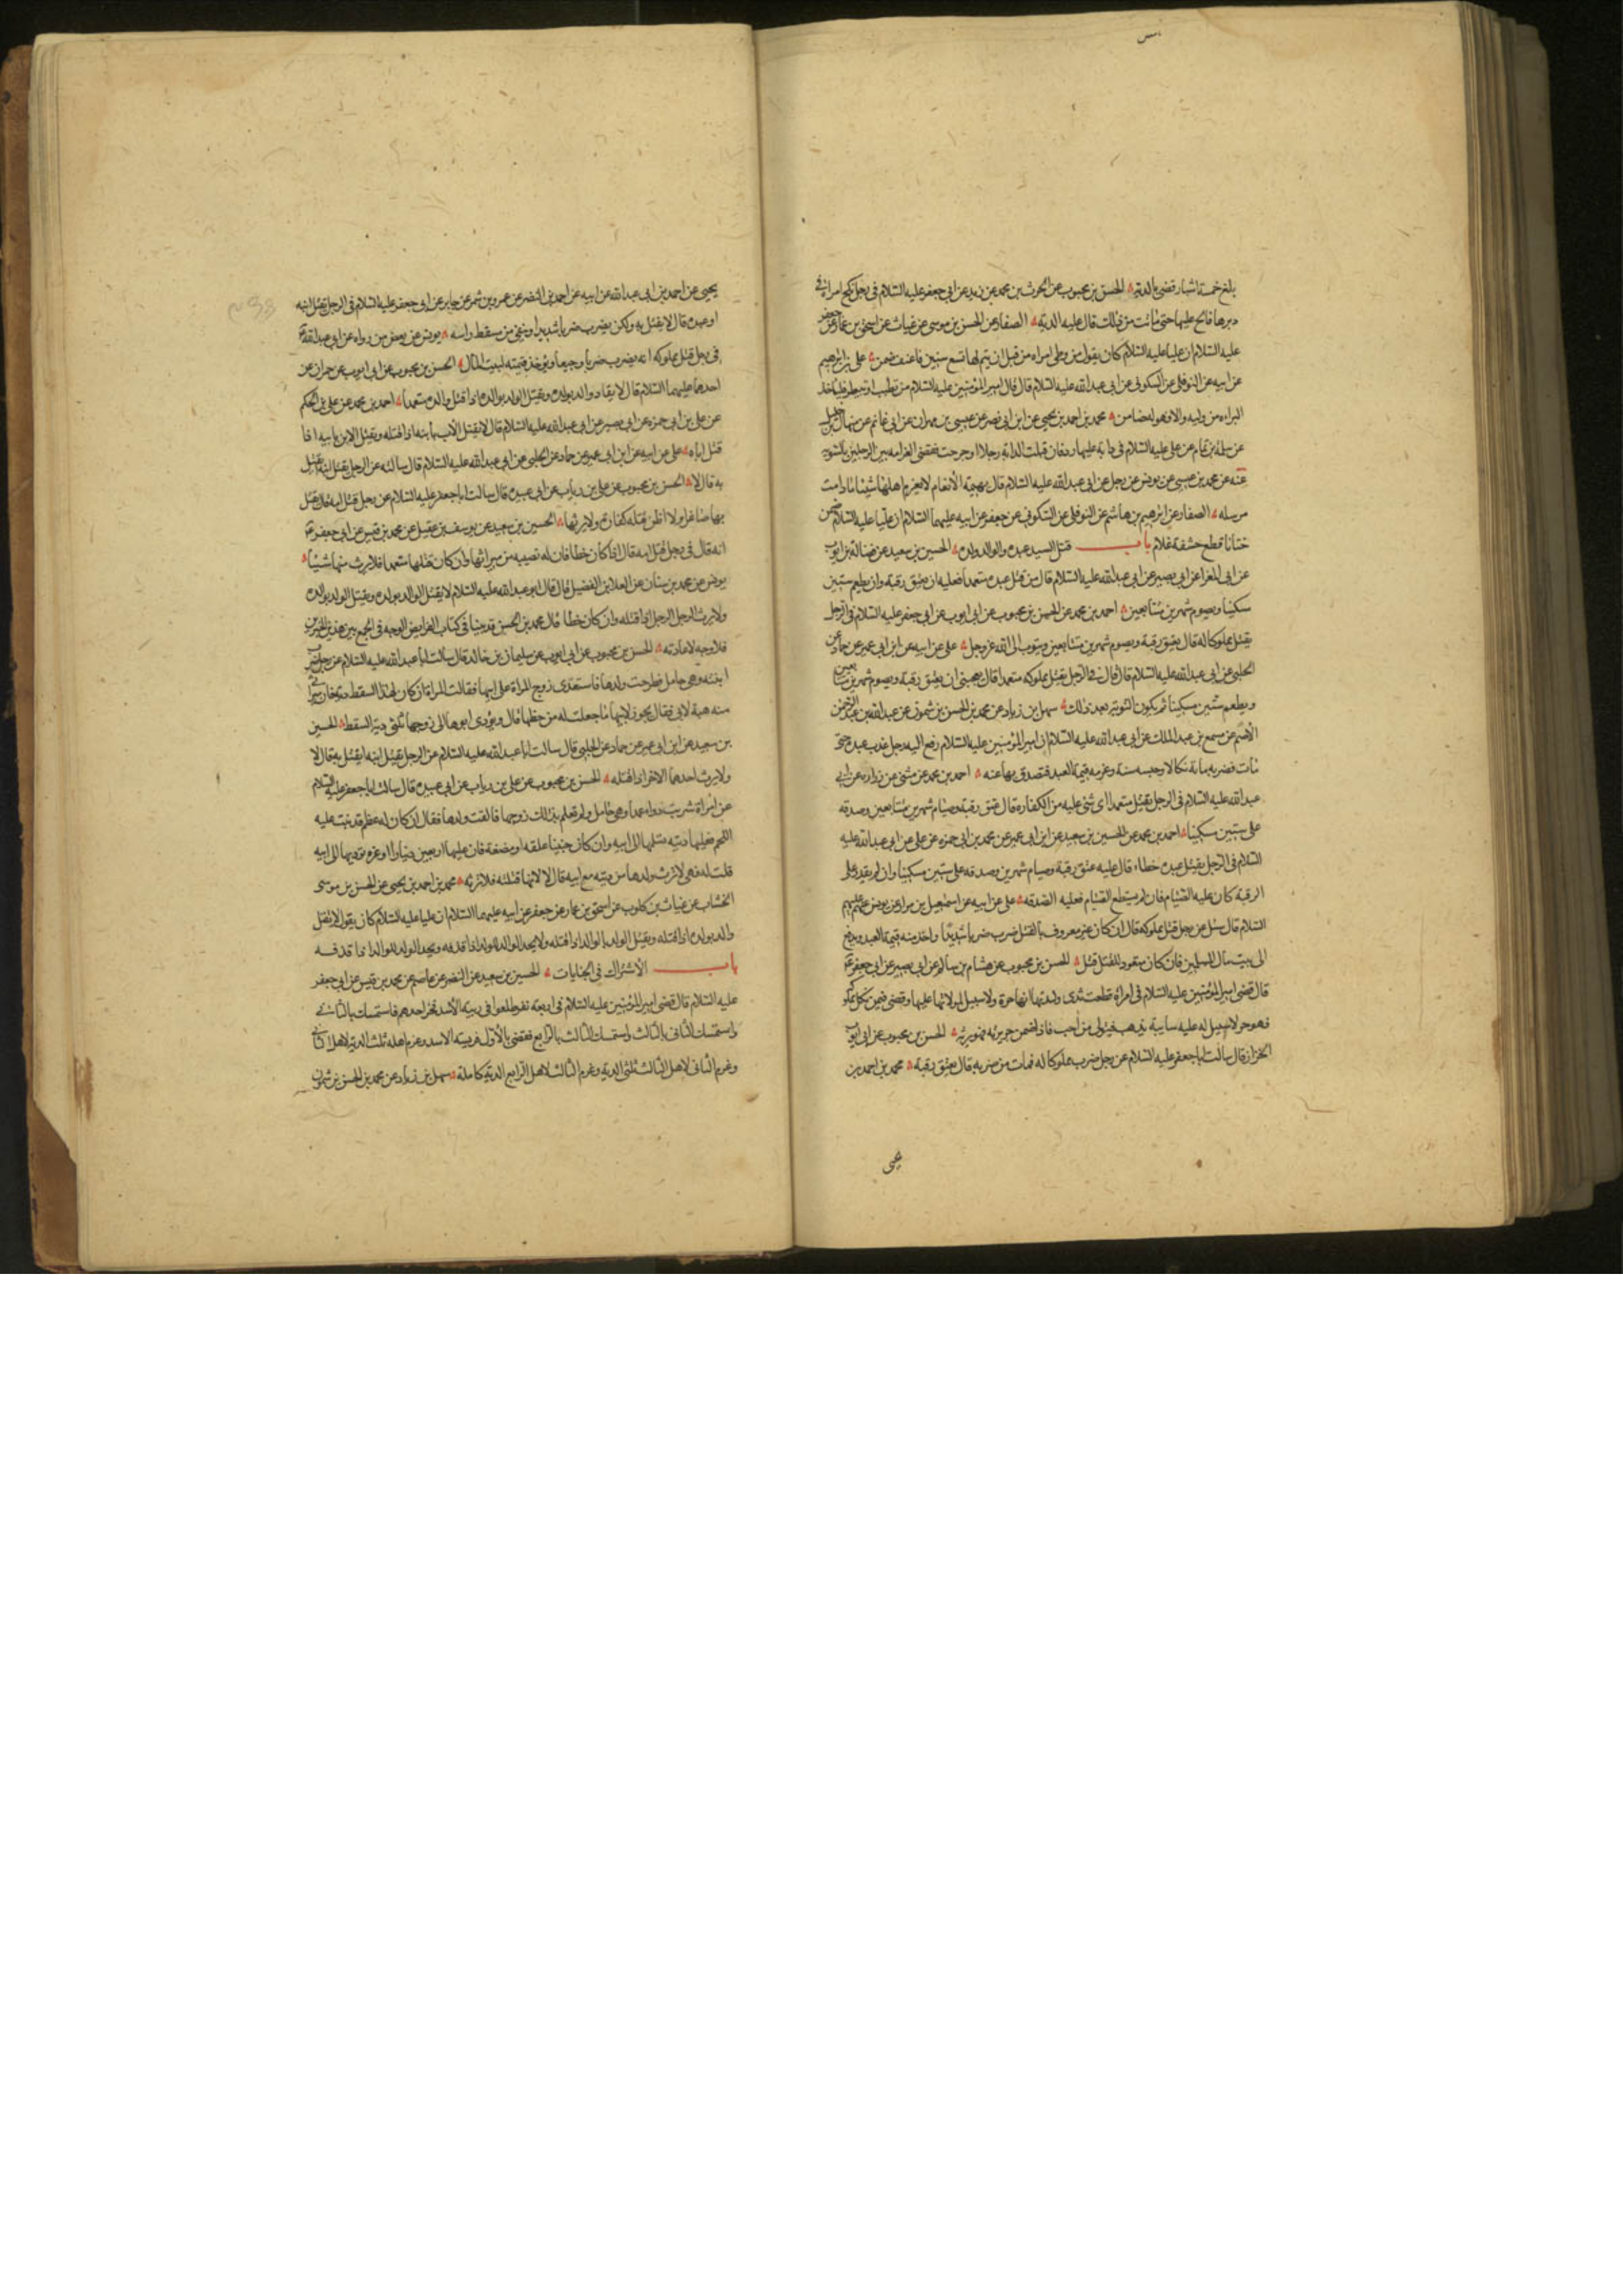 بلغ خمسة اشبار قضى بالدية الحسن بن محبوب عن الحرث بن محمد عن زيد عن ابي جعفر عليه السلام في رجل نكح امراة في
دبرها فالح عليها حتى ماتت من ذلك قال عليه الدية الصفار عن الحسن بن موسى عن غياث عن اسحق بن عمار عن جعفر
عليه السلام ان عليا عليه السلام كان يقول من وطى امراه من قبل ان يتم لها تسع سنين فاعنف ضمن على بن ابرهيم
عن ابيه عن النوفلى عن السكونى عن ابى عبد الله عليه السلام قال قال امير المؤمنين عليه السلام من تطبب او تبيطر فلياخذ
البراءه من وليه والا فهو له ضامن محمد بن احمد بن يحيى عن ابن ابى نصر عن عيسى بن مهران عن ابى غانم عن منهال بن خليل
عن سلمة بن تمام عن على عليه السلام فى دابة عليها ردفان قتلت الدابة رجلا او جرحت فقضى الغرامه بين الردفين بالسوية
عنه عن محمد بن عيسى عن يونس عن رجل عن ابى عبد الله عليه السلام قال بهيمة الانعام لا يغرم اهلها شيئا ما دامت
مرسله الصفار عن ابرهيم بن هاشم عن النوفلى عن السكونى عن جعفر عن ابيه عليهما السلام ان عليا عليه السلام ضمن
ختانا قطع حشفة غلام باب قتل السيد عبده والوالد ولده الحسين بن سعيد عن فضالة بن ايوب
عن ابى المغرا عن ابى بصير عن ابى عبد الله عليه السلام قال من قتل عبده متعمدا فعليه ان يعتق رقبة وان يطعم ستين
مسكينا ويصوم شهرين متتابعين احمد بن محمد عن الحسن بن محبوب عن ابى ايوب عن ابى جعفر عليه السلام فى الرجل
يقتل مملوكا له قال يعتق رقبة ويصوم شهرين متتابعين ويتوب الى الله عز وجل على عن ابيه عن ابن ابى عمير عن حماد عن
الحلبى عن ابى عبد الله عليه السلام قال قال فى الرجل يقتل مملوكه متعمدا قال يعجبنى ان يعتق رقبة ويصوم شهرين متتابعين
ويطعم ستين مسكينا ثم يكون التوبة بعد ذلك سهل بن زياد عن محمد بن الحسن بن شمون عن عبد الله بن عبد الرحمن
الاصم عن مسمع بن عبد الملك عن ابى عبد الله عليه السلام ان امير المؤمنين عليه السلام رفع اليه رجل عذب عبده حتى
مات فضربه مائة نكالا وحبسه سنة وغرمه قيمة العبد فتصدق بها عنه احمد بن محمد عن مثنى عن زراره عن ابى
عبد الله عليه السلام فى الرجل يقتل متعمدا اى شئ عليه من الكفارة قال عتق رقبة وصيام شهرين متتابعين وصدقة
على ستين مسكينا احمد بن محمد عن الحسين بن سعيد عن ابن ابى عمير عن محمد بن ابى حمزه عن على عن ابى عبد الله عليه
السلام فى الرجل يقتل عبده خطاء قال عليه عتق رقبة وصيام شهرين وصدقه على ستين مسكينا وان لم يقدر على
الرقبة كان عليه الصيام فان لم يستطع الصيام فعليه الصدقه على عن ابيه عن اسمعيل بن مرار عن يونس عنهم عليهم
السلام قال سئل عن رجل قتل مملوكه قال ان كان غير معروف بالقتل ضرب ضربا شديدا واخذ منه قيمة العبد ويدفع
الى بيت مال المسلمين فان كان متعود للقتل قتل الحسن بن محبوب عن هشام بن سالم عن ابى بصير عن ابى جعفر ع
قال قضى امير المؤمنين عليه السلام فى امراة قطعت ثدى وليدتها انها حرة ولا سبيل لمولاتها عليها وقضى فيمن نكل بمملوكه
فهو حر لا سبيل له عليه سايبة يذهب فيتولى من احب فاذا ضمن جريرته فهو يرثه الحسن بن محبوب عن ابى ايوب
الخزاز قال سالت ابا جعفر عليه السلام عن رجل ضرب مملوكا له فمات من ضربه قال يعتق رقبة محمد بن احمد بن
يحيى عن احمد بن ابى عبد الله عن ابيه عن احمد بن النضر عن عمرو بن شمر عن جابر عن ابى جعفر عليه السلام فى الرجل يقتل ابنه
او عبده قال لا يقتل به ولكن يضرب ضربا شديدا وينفى من مسقط راسه يونس عن بعض من رواه عن ابى عبد الله ع
فى رجل قتل مملوكه انه يضرب ضربا وجيعا ويؤخذ قيمته لبيت المال الحسن بن محبوب عن ابى ايوب عن حمران عن
احدهما عليهما السلام قال لا يقاد والد بولده ويقتل الولد بوالده اذا قتل والده متعمدا احمد بن محمد عن على بن الحكم
عن على بن ابى حمزه عن ابى بصير عن ابى عبد الله عليه السلام قال لا يقتل الاب بابنه اذا قتله ويقتل الابن بابيه اذا
قتل اباه على عن ابيه عن ابن ابى عمير عن حماد عن الحلبى عن ابى عبد الله عليه السلام قال سالته عن الرجل يقتل ابنه ايقتل
به قال لا الحسن بن محبوب عن على بن رياب عن ابى عبيده قال سالت ابا جعفر عليه السلام عن رجل قتل امه قال يقتل
بها صاغرا ولا اظن قتله كفارة ولا يرثها الحسين بن سعيد عن يوسف بن عقيل عن محمد بن قيس عن ابى جعفر ع
انه قال فى رجل قتل امه قال اذا كان خطا فان له نصيبه من ميراثها وان كان قتلها متعمدا فلا يرث منها شيئا
يونس عن محمد بن سنان عن العلا بن الفضيل قال قال ابو عبد الله عليه السلام لا يقتل الوالد بولده ويقتل الولد بوالده
ولا يرث الرجل الرجل اذا قتله وان كان خطا قال محمد بن الحسن قد بينا فى كتاب الفرايض الوجه فى الجمع بين هذين الخبرين
فلا وجه لاعادته الحسن بن محبوب عن ابى ايوب عن سليمان بن خالد قال سالت ابا عبد الله عليه السلام عن رجل ضرب
ابنته وهى حامل فطرحت ولدها فاستعدى زوج المراة على ابيها فقالت المراة ان كان لهذا السقط دية فان ميراثى
منه هبة لابى فقال يجوز لابيها ما جعلت له من حظها قال ويؤدى ابوها الى زوجها ثلثى دية السقط الحسين
بن سعيد عن ابن ابى عمير عن حماد عن الحلبى قال سالت ابا عبد الله عليه السلام عن الرجل يقتل ابنه ايقتل به قال لا
ولا يرث احدهما الاخر اذا قتله الحسن بن محبوب عن على بن رياب عن ابى عبيده قال سالت ابا جعفر عليه السلام
عن امراة شربت دواء عمدا وهى حامل ولم تعلم بذلك زوجها فالقت ولدها فقال ان كان له عظم قد نبت عليه
اللحم فعليها دية تسلمها الى ابيه وان كان جنينا علقه او مضغة فان عليها اربعين دينارا او غرة تؤديها الى ابيه
قلت له فهى لا ترث ولدها من ديته مع ابيه قال لا لانها قتلته فلا ترثه محمد بن احمد بن يحيى عن الحسن بن موسى
الخشاب عن غياث بن كلوب عن اسحق بن عمار عن جعفر عن ابيه عليهما السلام ان عليا عليه السلام كان يقول لا يقتل
والد بولده اذا قتله ويقتل الولد بالوالد اذا قتله ولا يحد الوالد للولد اذا قذفه ويحد الولد للوالد اذا قذفه
باب الاشتراك فى الجنايات الحسين بن سعيد عن النضر عن عاصم عن محمد بن قيس عن ابى جعفر
عليه السلام قال قضى امير المؤمنين عليه السلام فى اربعة نفر اطلعوا فى زبية الاسد فخر احدهم فاستمسك بالثانى
واستمسك الثانى بالثالث واستمسك الثالث بالرابع فقضى بالاول فريسة الاسد وغرم اهله ثلث الدية لاهل الثانى
وغرم الثانى لاهل الثالث ثلثى الدية وغرم الثالث لاهل الرابع الدية كاملة سهل بن زياد عن محمد بن الحسن بن شمون